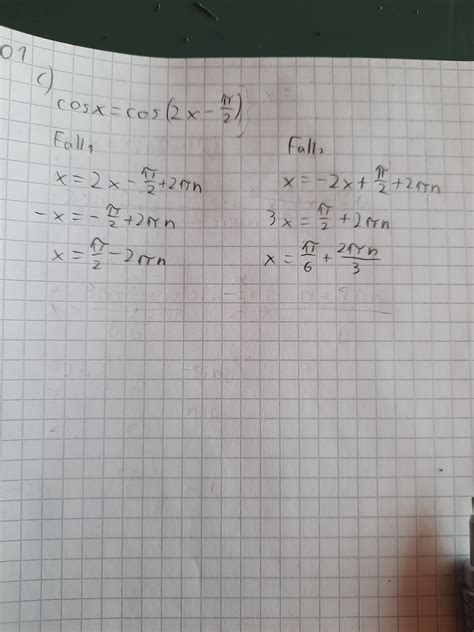 01
c)
cos x = cos(2x - π/2)
Fall₁
x = 2x - π/2 + 2πn
-x = -π/2 + 2πn
x = π/2 - 2πn
Fall₂
x = -2x + π/2 + 2πn
3x = π/2 + 2πn
x = π/6 + 2πn/3